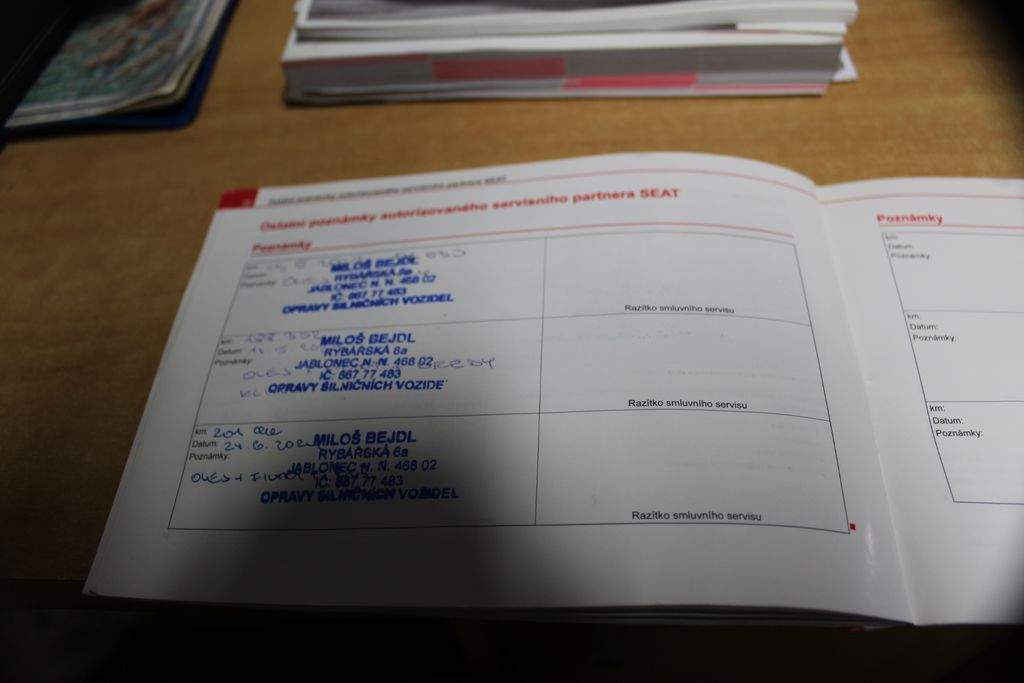 Ostatní poznámky autorizovaného servisního partnera SEAT
Ostatní poznámky autorizovaného servisního partnera SEAT
Poznámky
km:
Datum:
Poznámky:
MILOŠ BEJDL
RYBÁŘSKÁ 8a
JABLONEC N. N. 468 02
IČ: 867 77 483
OPRAVY SILNIČNÍCH VOZIDEL
Razítko smluvního servisu
km:
Datum:
Poznámky:
OLEJ
MILOŠ BEJDL
RYBÁŘSKÁ 8a
JABLONEC N. N. 468 02
IČ: 867 77 483
OPRAVY SILNIČNÍCH VOZIDE
Razítko smluvního servisu
km:
Datum: 24.6.
Poznámky:
OLEJ +
MILOŠ BEJDL
RYBÁŘSKÁ 8a
JABLONEC N. N. 468 02
IČ: 867 77 483
OPRAVY SILNIČNÍCH VOZIDEL
Razítko smluvního servisu
Poznámky
km:
Datum:
Poznámky:
km:
Datum:
Poznámky:
km:
Datum:
Poznámky: